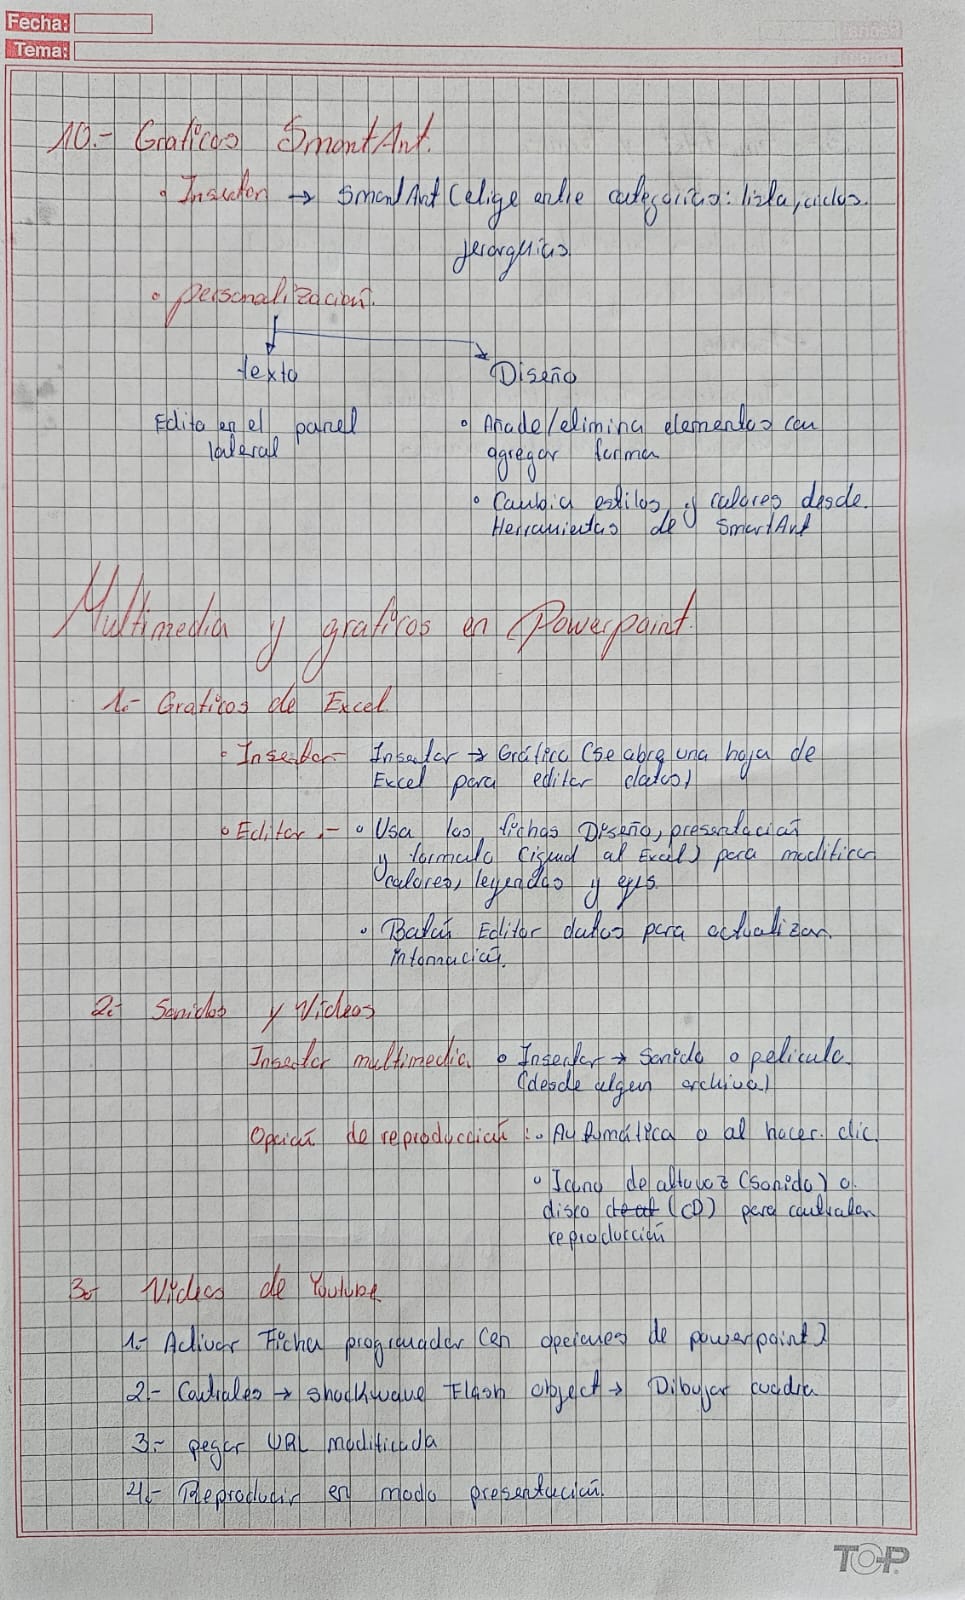 Fecha:
Tema:
10.- Graficos SmartArt.
• Insertar → SmartArt (elige entre categorias: lista, ciclos.
jerarquias.
• personalización.
texto
Diseño
Edita en el panel
lateral
• Añade/elimina elementos con
agregar forma
• Cambia estilos y colores desde.
Herramientas de SmartArt
Multimedia y graficos en Powerpoint.
1.- Graficos de Excel
• Insertar- Insertar → Gráfico (se abre una hoja de
Excel para editar datos)
• Editar.- • Usa las fichas Diseño, presentación
y formato (igual al Excel) para modificar
colores, leyendas y ejes.
• Botón Editar datos para actualizar.
información.
2.- Sonidos y Videos
Insertar multimedia. • Insertar → Sonido o pelicula.
(desde algun archivo)
Opción de reproducción: • Automática o al hacer. clic.
• Icono de altavoz (sonido) o.
disco (CD) para controlar
reproducción
3.- Videos de Youtube
1.- Activar Ficha programador (en opciones de powerpoint)
2.- Controles → shockwave Flash object → Dibujar cuadro
3.- pegar URL modificada
4.- Reproducir en modo presentación.
TOP